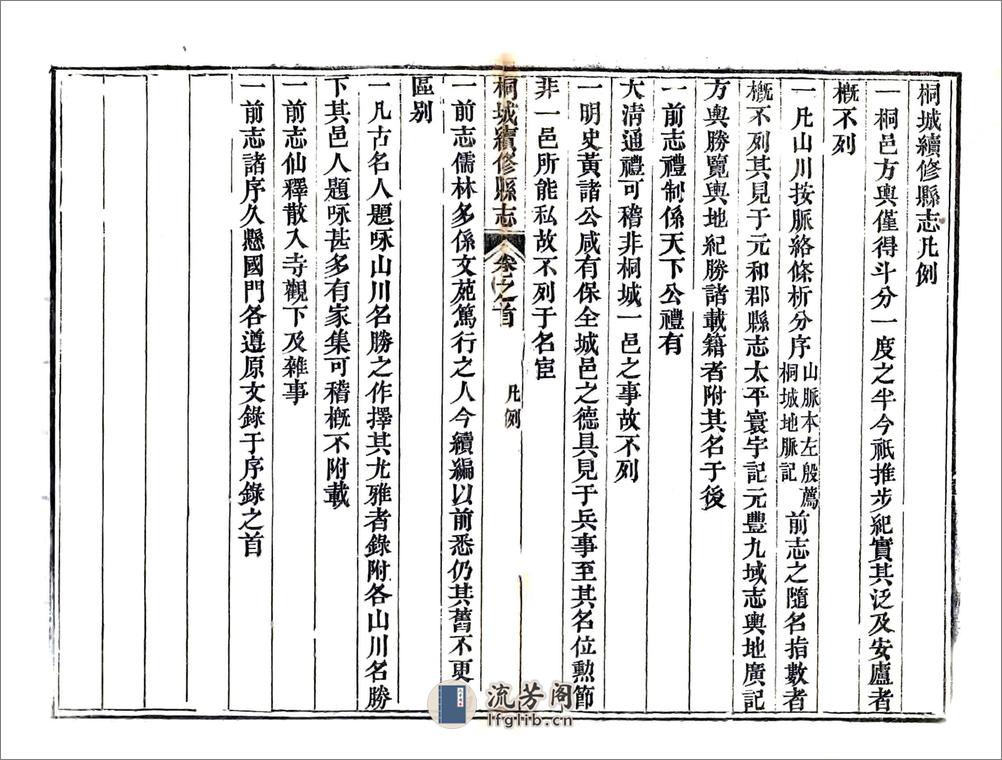 桐城續修縣志凡例
一桐邑方輿僅得斗分一度之半今祇推步紀實其泛及安廬者
概不列
一凡山川按脈絡條析分序山脈本左殷薦桐城地脈記前志之隨名指數者
概不列其見于元和郡縣志太平寰宇記元豐九域志輿地廣記
方輿勝覽輿地紀勝諸載籍者附其名于後
一前志禮制係天下公禮有
大清通禮可稽非桐城一邑之事故不列
一明史黃諸公咸有保全城邑之德具見于兵事至其名位勲節
非一邑所能私故不列于名宦
桐城續修縣志 卷之首 凡例
一前志儒林多係文苑篤行之人今續編以前悉仍其舊不更
區别
一凡古名人題咏山川名勝之作擇其尤雅者錄附各山川名勝
下其邑人題咏甚多有家集可稽概不附載
一前志仙釋散入寺觀下及雜事
一前志諸序久懸國門各遵原文錄于序錄之首
流芳阁
lfglib.cn